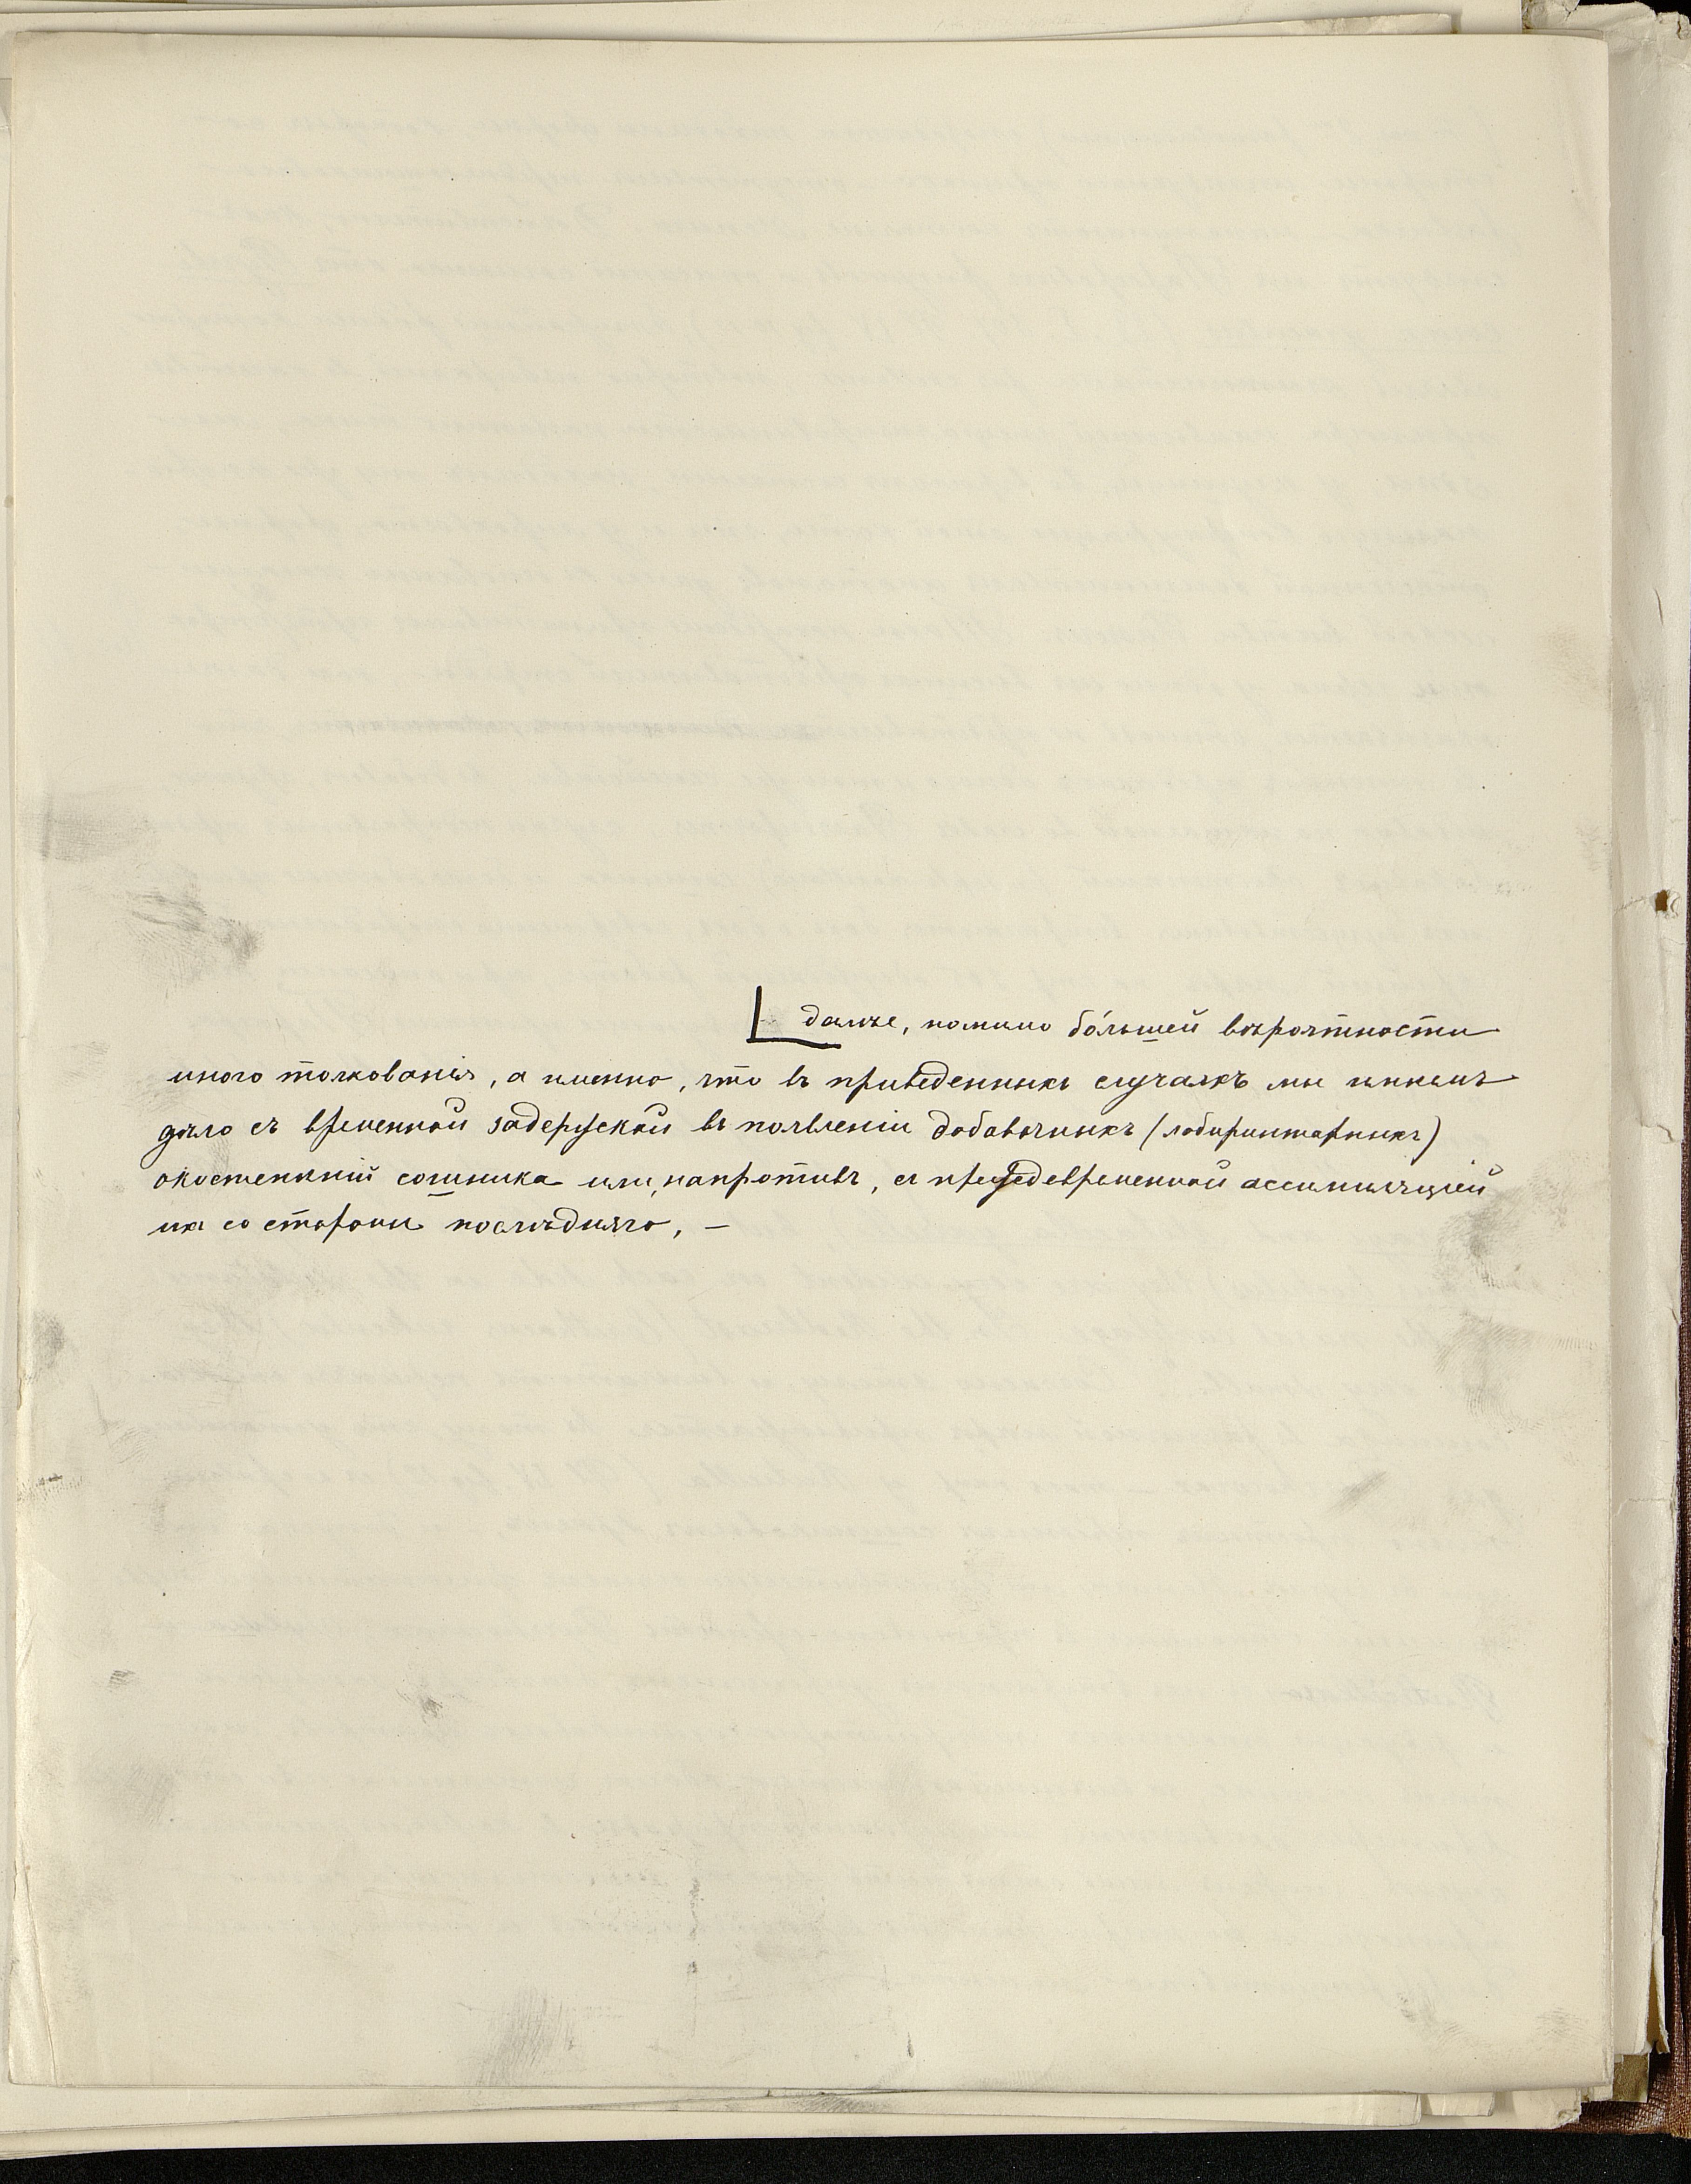 далѣе, помимо бо́льшей вѣроятности
иного толкованія, а именно, что въ приведенныхъ случаяхъ мы имѣемъ
дѣло съ временной задержкой въ появленіи добавочныхъ (лабиринтарныхъ)
окостенѣній сошника или, напротивъ, съ преждевременной ассимиляціей
ихъ со стороны послѣдняго, —